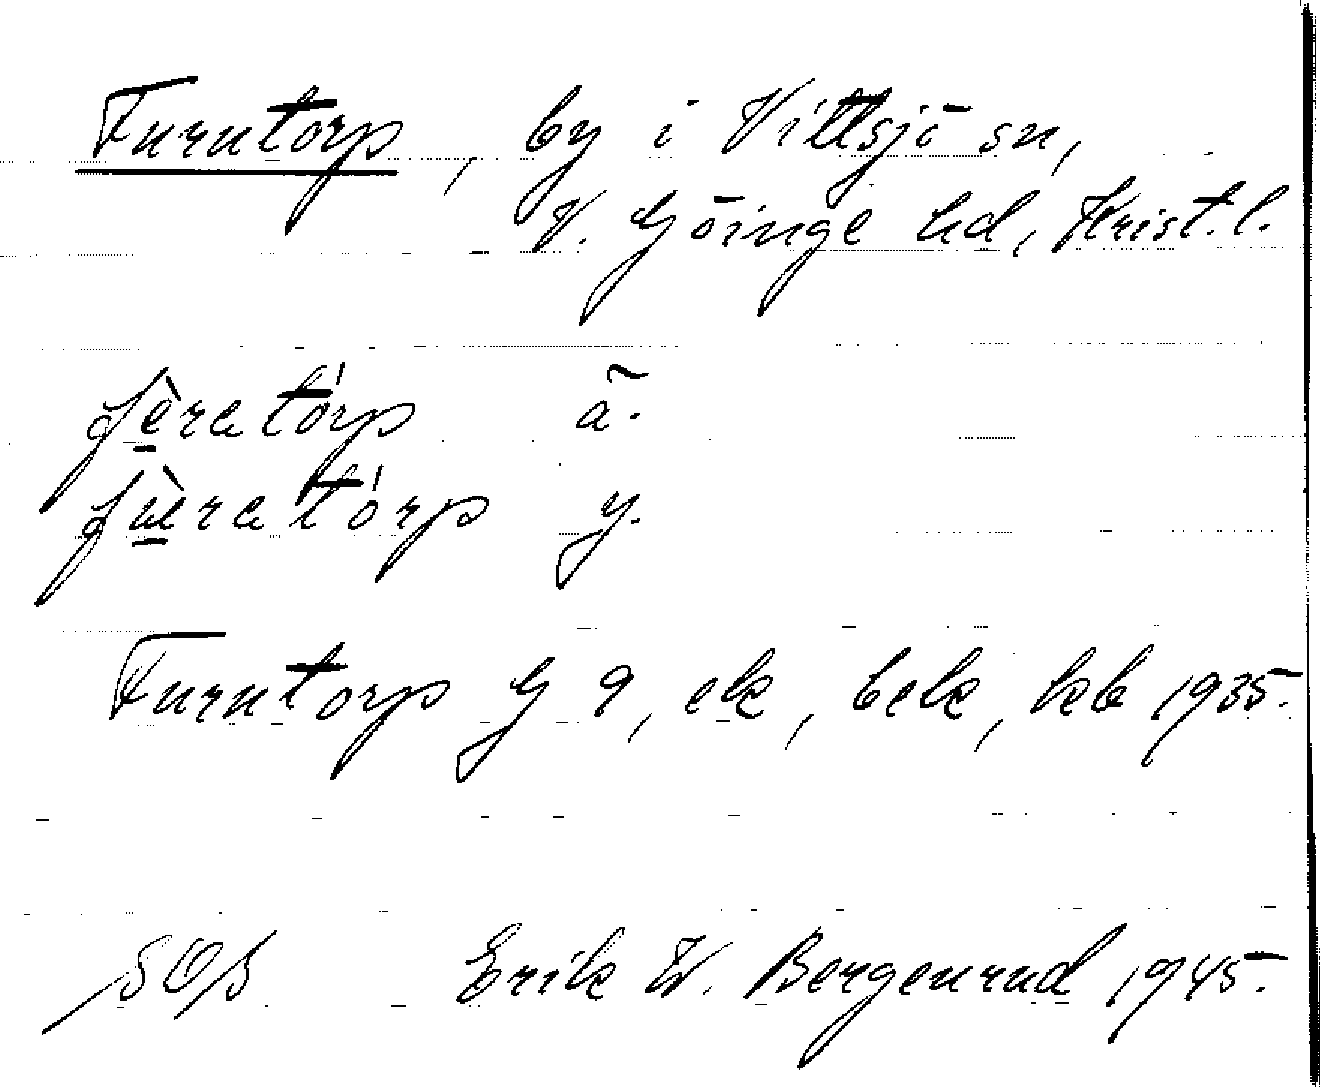 Furutorp, by i Vittsjö sn,
V. Göinge hd, Krist. l.
fè̱ratórp ã.
fù̱ratórp y.
Furutorp G 9, ek, bek, kb 1935.
SOS Erik W. Bergenrud 1945.